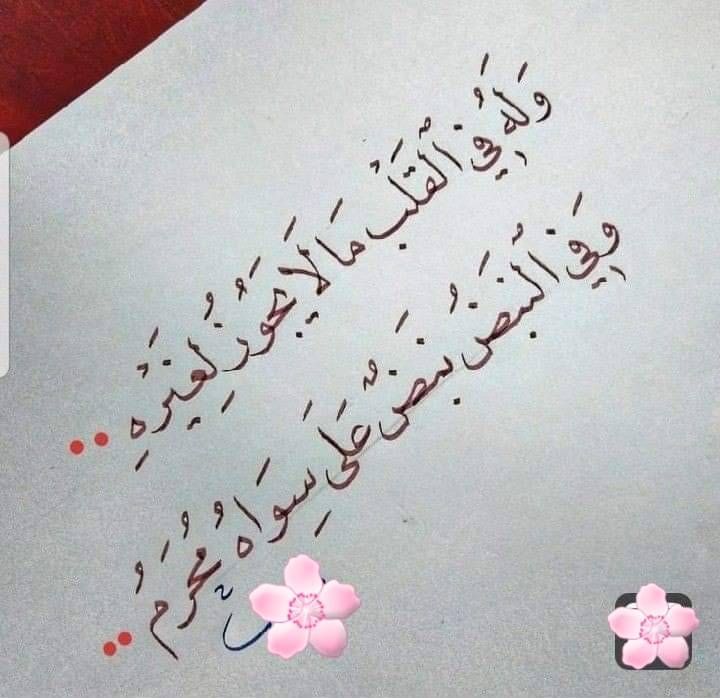 وَلَهُ فِي ٱلْقَلْبِ مَا لَا يَجُوزُ لِغَيْرِهِ ..
وَفِي ٱلْنَبَضِ نَبَضٌ عَلَى سِوَاهُ مُحَرَمُ ..